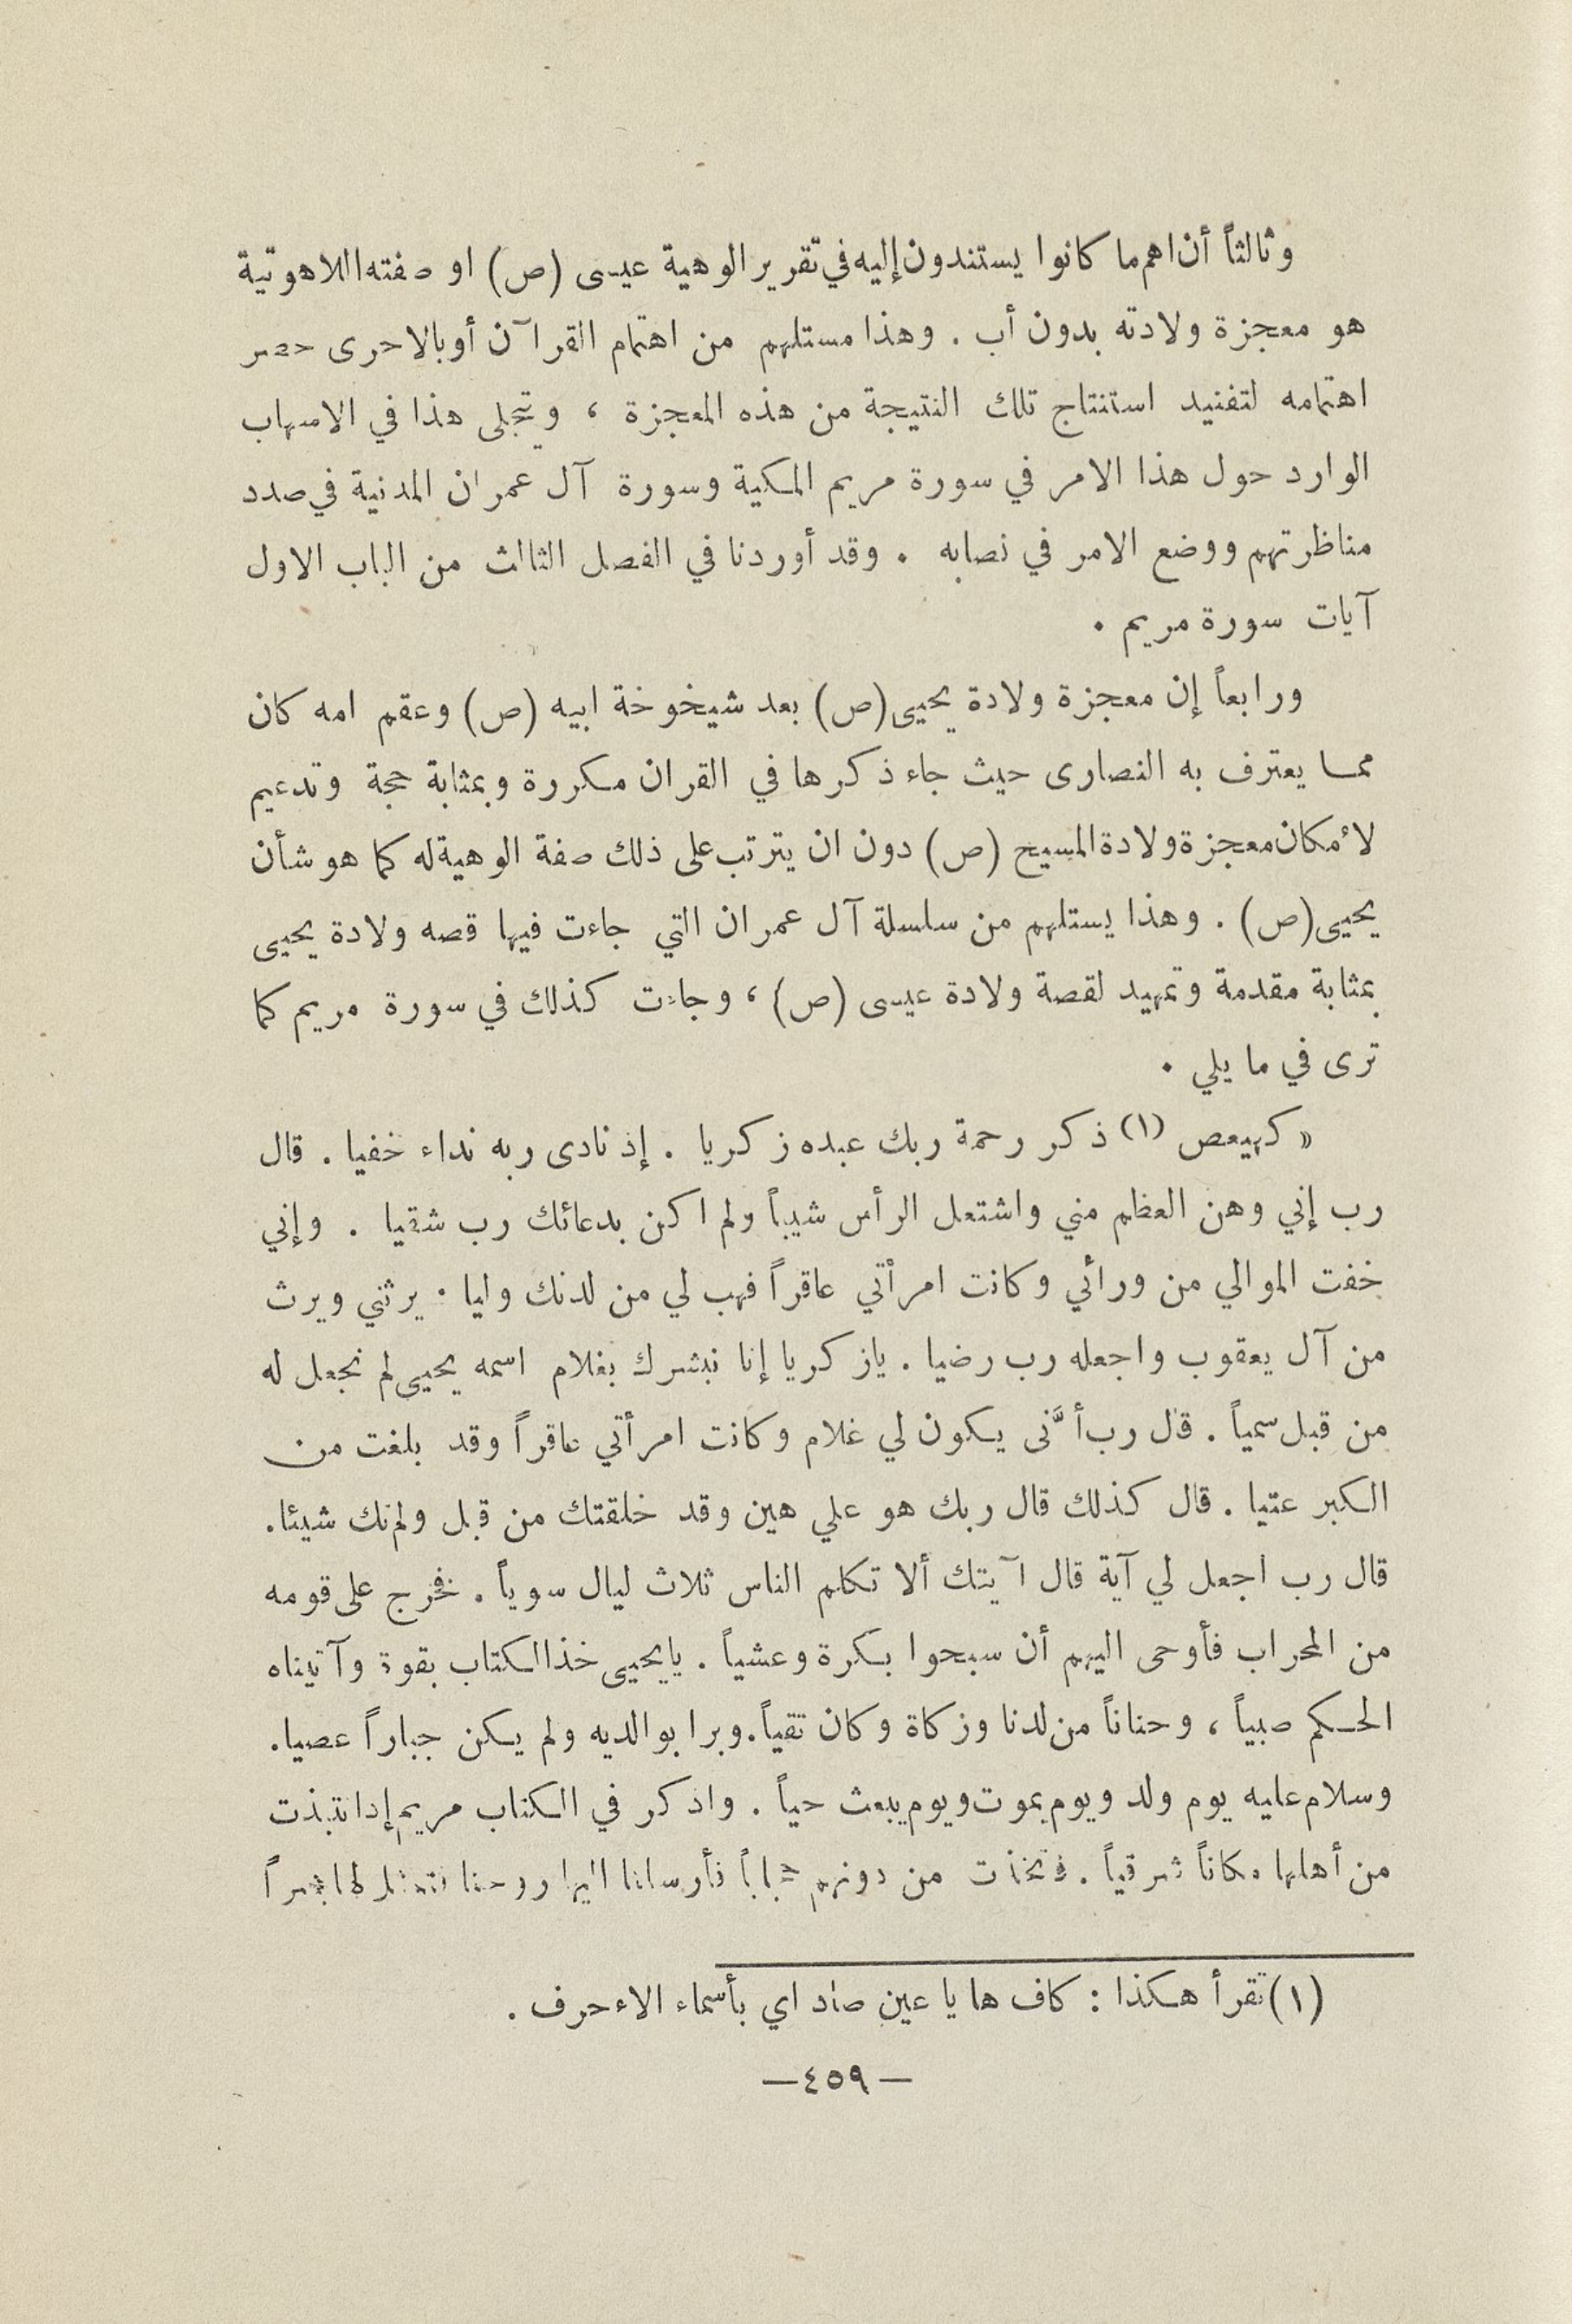 وثالثاً أن اهم ما كانوا يستندون إليه في تقرير الوهية عيسى (ص) او صفته اللاهوتية
هو معجزة ولادته بدون أب . وهذا مستلهم من اهتمام القرآن أو بالاحرى حصر
اهتمامه لتفنيد استنتاج تلك النتيجة من هذه المعجزة ، ويتجلى هذا في الاسهاب
الوارد حول هذا الامر في سورة مريم المكية وسورة آل عمران المدنية في صدد
مناظرتهم ووضع الامر في نصابه . وقد أوردنا في الفصل الثالث من الباب الاول
آيات سورة مريم .
ورابعاً إن معجزة ولادة يحيى (ص) بعد شيخوخة ابيه (ص) وعقم امه كان
مما يعترف به النصارى حيث جاء ذكرها في القران مكررة وبمثابة حجة وتدعيم
لأمكان معجزة ولادة المسيح (ص) دون ان يترتب على ذلك صفة الوهية له كما هو شأن
يحيى (ص) . وهذا يستلهم من سلسلة آل عمران التي جاءت فيها قصه ولادة يحيى
بمثابة مقدمة وتمهيد لقصة ولادة عيسى (ص) ، وجاءت كذلك في سورة مريم كما
ترى في ما يلي .
« كهيعص (١) ذكر رحمة ربك عبده زكريا . إذ نادى ربه نداء خفيا . قال
رب إني وهن العظم مني واشتعل الرأس شيباً ولم اكن بدعائك رب شقيا . وإني
خفت الموالي من ورائي وكانت امرأتي عاقراً فهب لي من لدنك وليا . يرثني ويرث
من آل يعقوب واجعله رب رضيا . يازكريا إنا نبشرك بغلام اسمه يحيى لم نجعل له
من قبل سمياً . قال رب أنَّى يكون لي غلام وكانت امرأتي عاقراً وقد بلغت من
الكبر عتيا . قال كذلك قال ربك هو علي هين وقد خلقتك من قبل ولم تك شيئا .
قال رب اجعل لي آية قال آيتك ألا تكلم الناس ثلاث ليال سوياً . فخرج على قومه
من المحراب فأوحى اليهم أن سبحوا بكرة وعشياً . يايحيى خذ الكتاب بقوة وآتيناه
الحكم صبياً ، وحناناً من لدنا وزكاة وكان تقياً . وبرا بوالديه ولم يكن جباراً عصيا .
وسلام عليه يوم ولد ويوم يموت ويوم يبعث حياً . واذكر في الكتاب مريم إذ انتبذت
من أهلها مكاناً شرقياً . فاتخذت من دونهم حجاباً فأرسلنا اليها روحنا فتمثل لها بشراً
(١) تقرأ هكذا : كاف ها يا عين صاد اي بأسماء الاءحرف .
— ٤٥٩ —